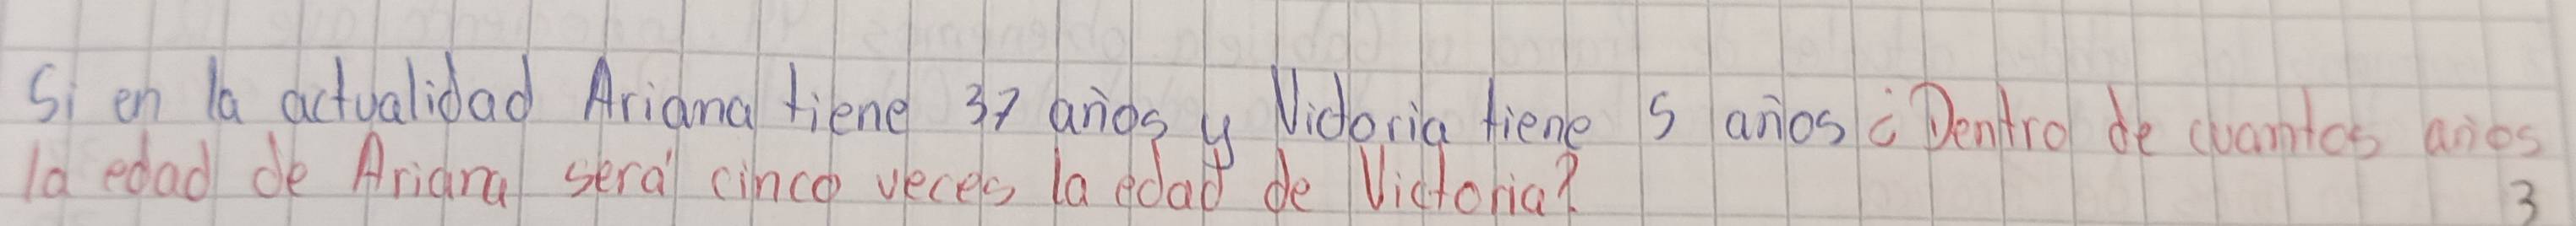 Si en la actualidad Ariana tiene 37 años y Victoria tiene 5 años ¿Dentro de cuantos años
la edad de Ariana será cinco veces la edad de Victoria?
3